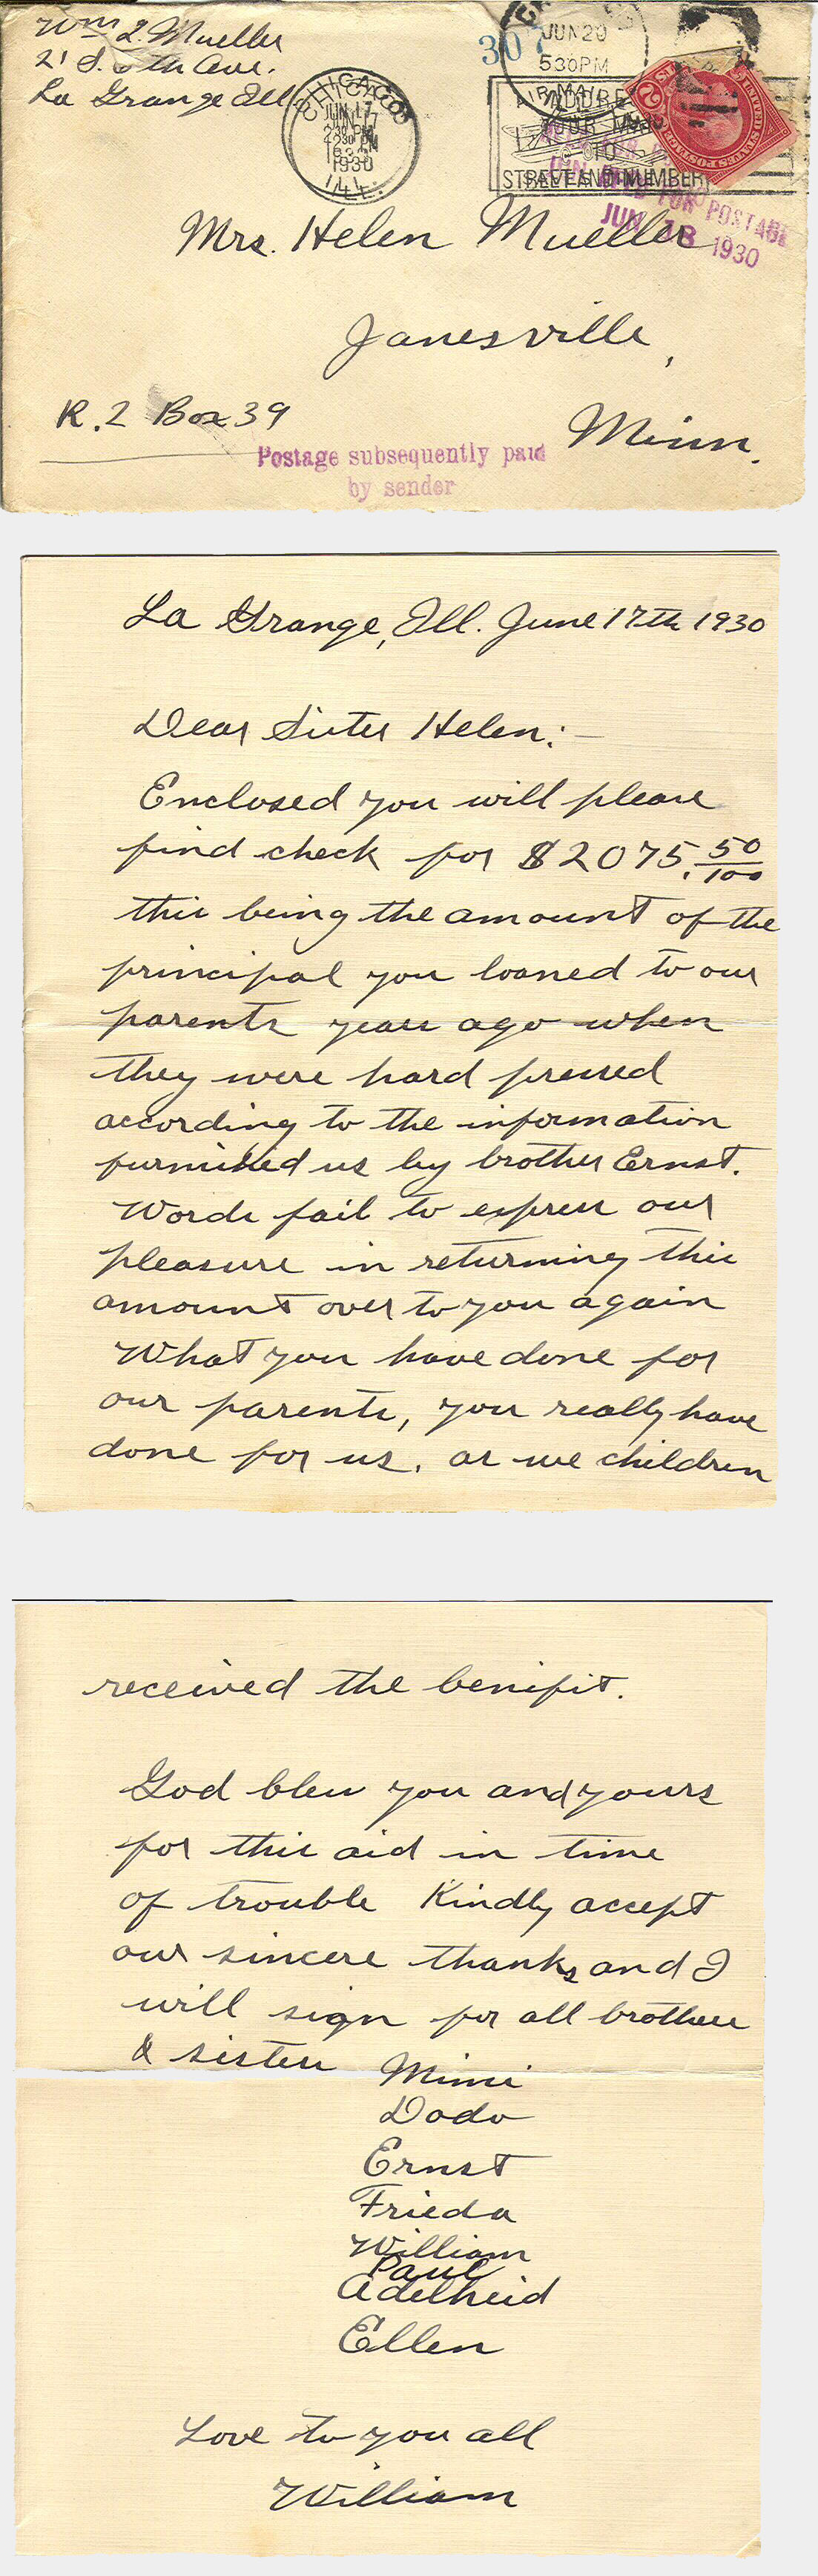 Wm L. Mueller
21 S. 6th Ave.
La Grange Ill
CHICAGO
JUN 17
230 PM
1930
ILL.
307
JUN 20
530 PM
AIR MAIL
ADDRESS
YOUR MAIL
TO
STREET AND NUMBER
FOR POSTAGE
JUN 18 1930
UNITED STATES POSTAGE
2
Mrs. Helen Mueller
Janesville,
R.2 Box 39
Minn.
Postage subsequently paid
by sender
La Grange, Ill. June 17th 1930
Dear Sister Helen:—
Enclosed you will please
find check for $2075.50/100
this being the amount of the
principal you loaned to our
parents years ago when
they were hard pressed
according to the information
furnished us by brother Ernst.
Words fail to express our
pleasure in returning this
amount over to you again
What you have done for
our parents, you really have
done for us. as we children
received the benifit.
God bless you and yours
for this aid in time
of trouble Kindly accept
our sincere thanks and I
will sign for all brothers
& sisters Mimi
Dodo
Ernst
Frieda
William
Paul
Adelheid
Ellen
Love to you all
William